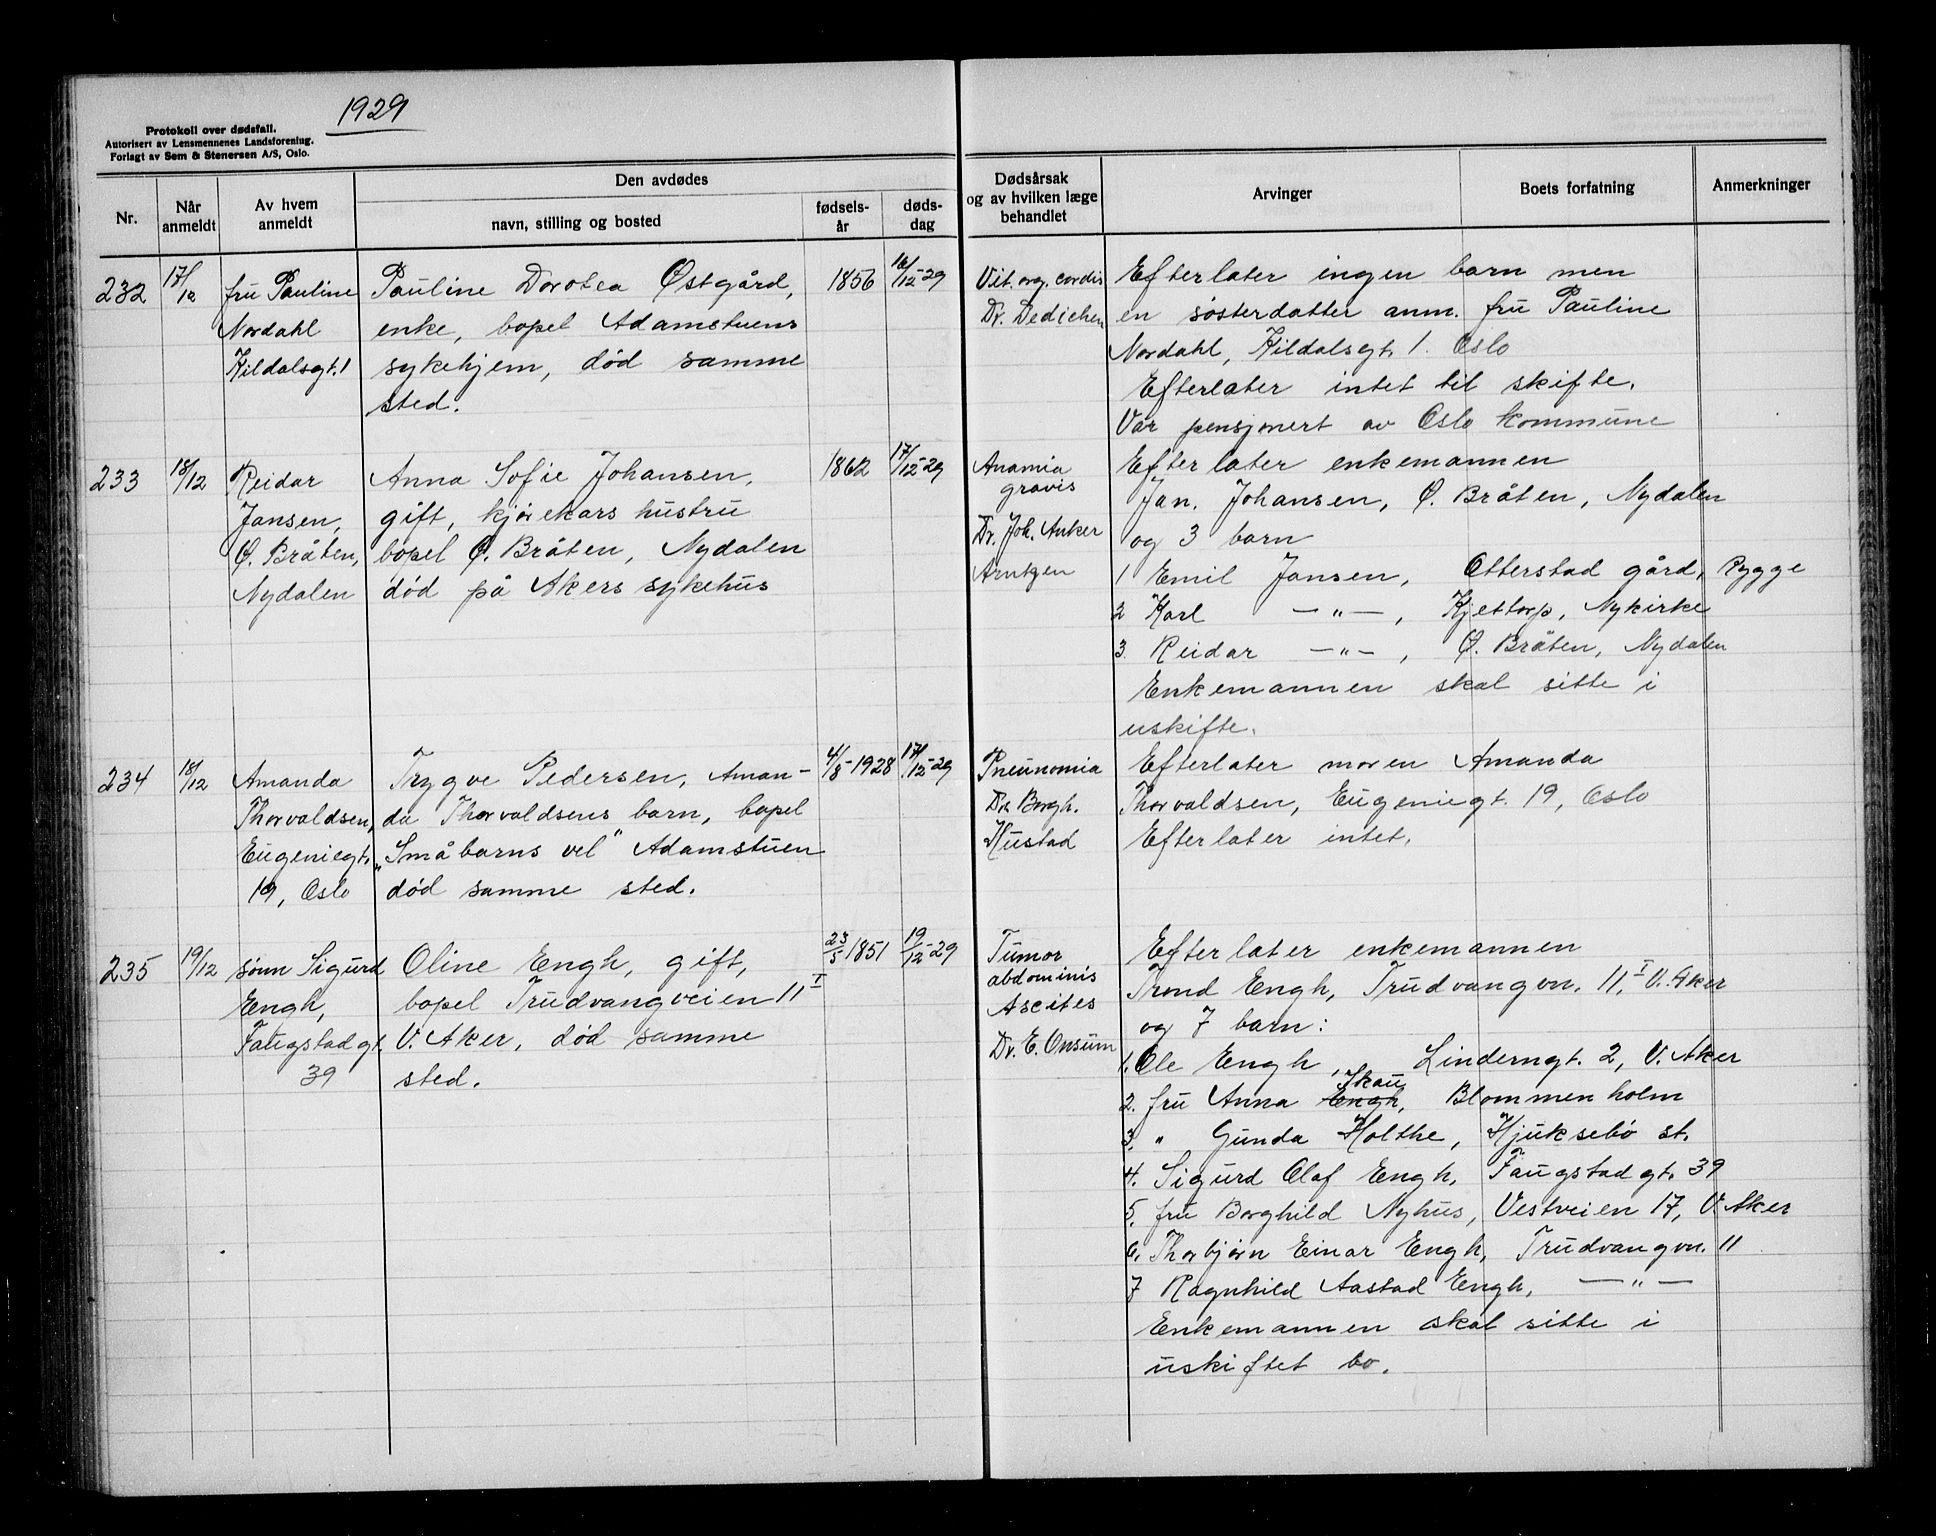 1929
Protokoll over dødsfall.
Autorisert av Lensmennenes Landsforening.
Forlagt av Sem & Stenersen A/S, Oslo.
Nr.
Når anmeldt
Av hvem anmeldt
Den avdødes
navn, stilling og bosted
fødsels-år
døds-dag
Dødsårsak
og av hvilken læge
behandlet
Arvinger
Boets forfatning
Anmerkninger
232
17/12
fru Pauline
Nordahl
Kildalsgt. 1
Pauline Dorotea Østgård,
enke, bopel Adamstuens
sykehjem, død samme
sted.
1856
16/12-29
Vit. org. cordis
Dr. Dedichen
Efterlater ingen barn men
en søsterdatter anm. fru Pauline
Nordahl, Kildalsgt. 1. Oslo
Efterlater intet til skifte.
Var pensjonert av Oslo kommune
233
18/12
Reidar
Jansen,
Ø. Bråten,
Nydalen
Anna Sofie Johansen,
gift, kjørekars hustru
bopel Ø. Bråten, Nydalen
død på Akers sykehus
1862
17/12-29
Anamia
gravis
Dr. Joh. Anker
Arntzen
Efterlater enkemannen
Jan. Johansen, Ø. Bråten, Nydalen
og 3 barn
1 Emil Jansen, Otterstad gård, Rygge
2 Karl —"—, Kjettorp, Nykirke
3. Reidar —"—, Ø. Bråten, Nydalen
Enkemannen skal sitte i
uskifte.
234
18/12
Amanda
Thorvaldsen,
Eugeniegt.
19, Oslo
Trygve Pedersen, Aman-
da Thorvaldsens barn, bopel
"Småbarns vel" Adamstuen
død samme sted.
4/8-1928
17/12-29
Pneunomia
Dr. Borgh.
Hustad
Efterlater moren Amanda
Thorvaldsen, Eugeniegt. 19, Oslo
Efterlater intet.
235
19/12
sønn Sigurd
Engh,
Faugstadgt.
39
Oline Engh, gift,
bopel Trudvangveien 11 I
V. Aker, død samme
sted.
23/5 1851
19/12-29
Tumor
abdominis
Ascites
Dr. E. Onsum
Efterlater enkemannen
Trond Engh, Trudvangvn. 11, I V. Aker
og 7 barn:
1. Ole Engh, Linderngt. 2, V. Aker
2. fru Anna Engh Skau, Blommenholm
3. " Gunda Holthe, Hjuksebø st.
4. Sigurd Olaf Engh, Faugstadgt. 39
5. fru Borghild Nyhus, Vestveien 17, V. Aker
6. Thorbjørn Einar Engh, Trudvangvn. 11
7 Ragnhild Aastad Engh, —"—
Enkemannen skal sitte i
uskiftet bo.